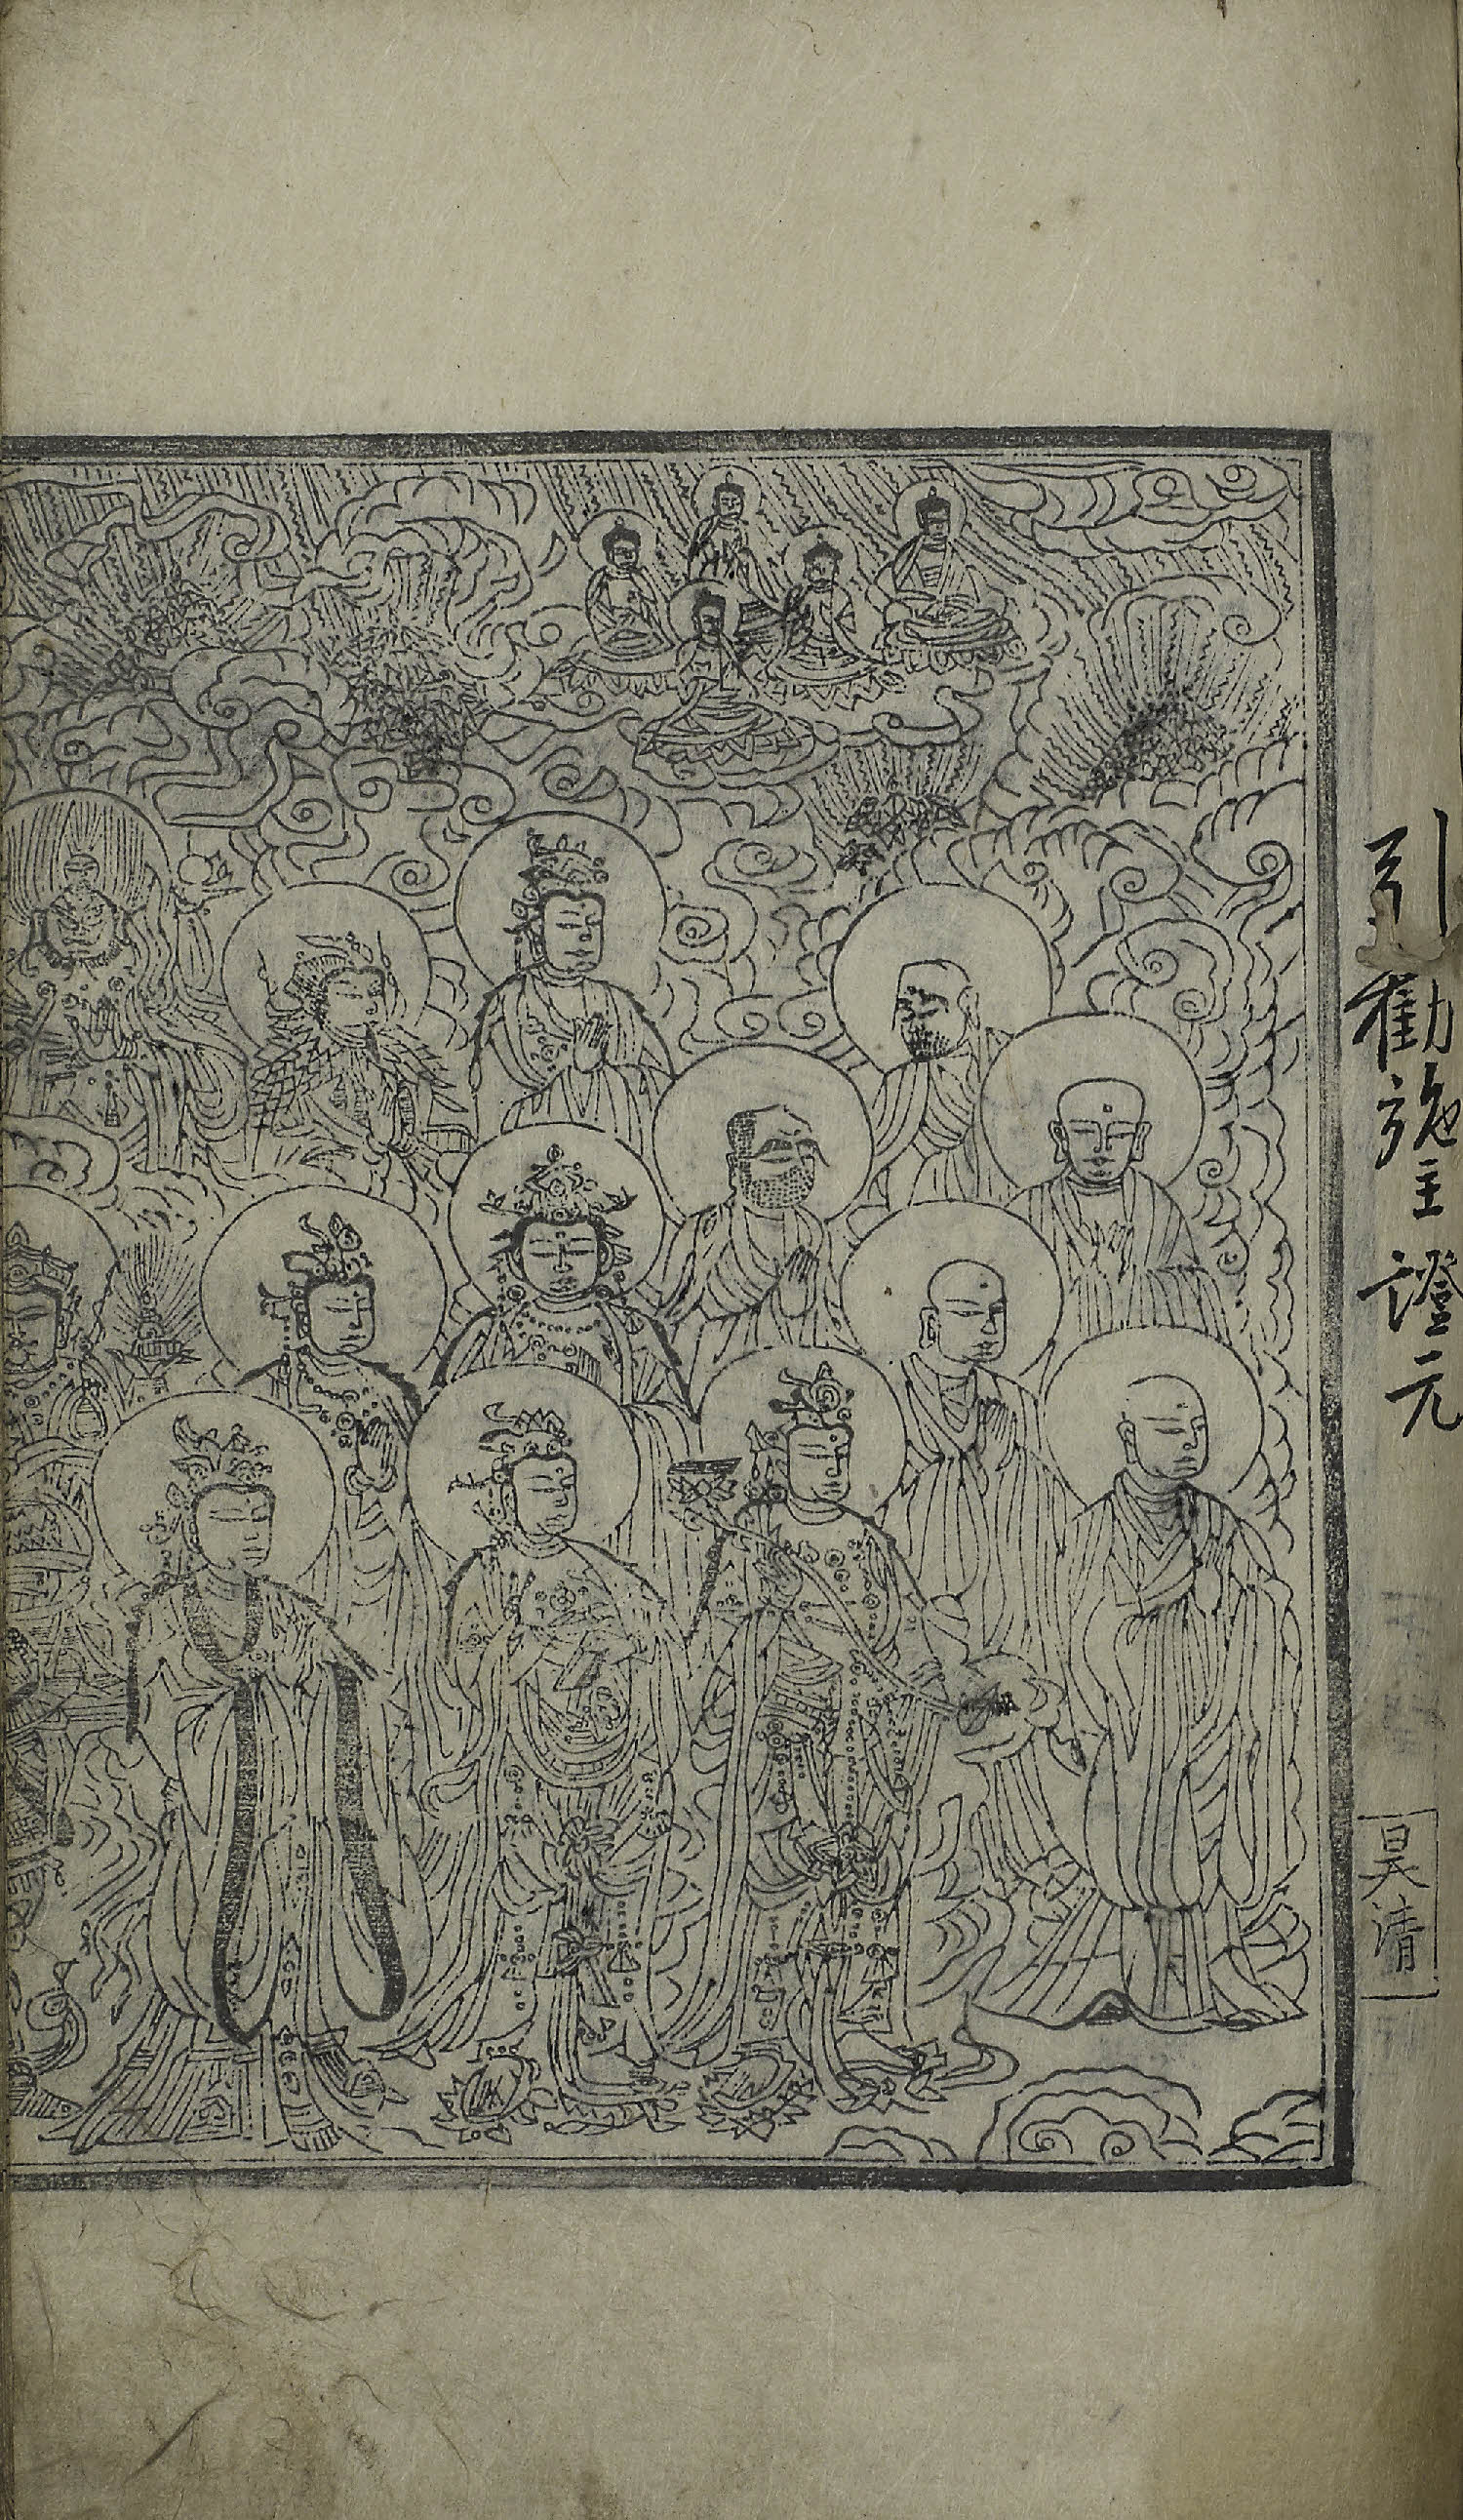 引勸施主證元
昊清